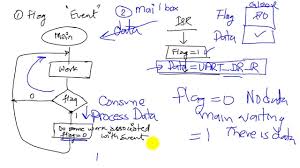 ① Flag "Event"
② mail box
data
Main
Work
0
flag
1
Do some work associated
with Event
flag=0
Consume
Process Data
ISR
Flag=1
Data=UART_DR_R
Global
Flag
Data
flag=0 No data
main waiting
=1 There is data